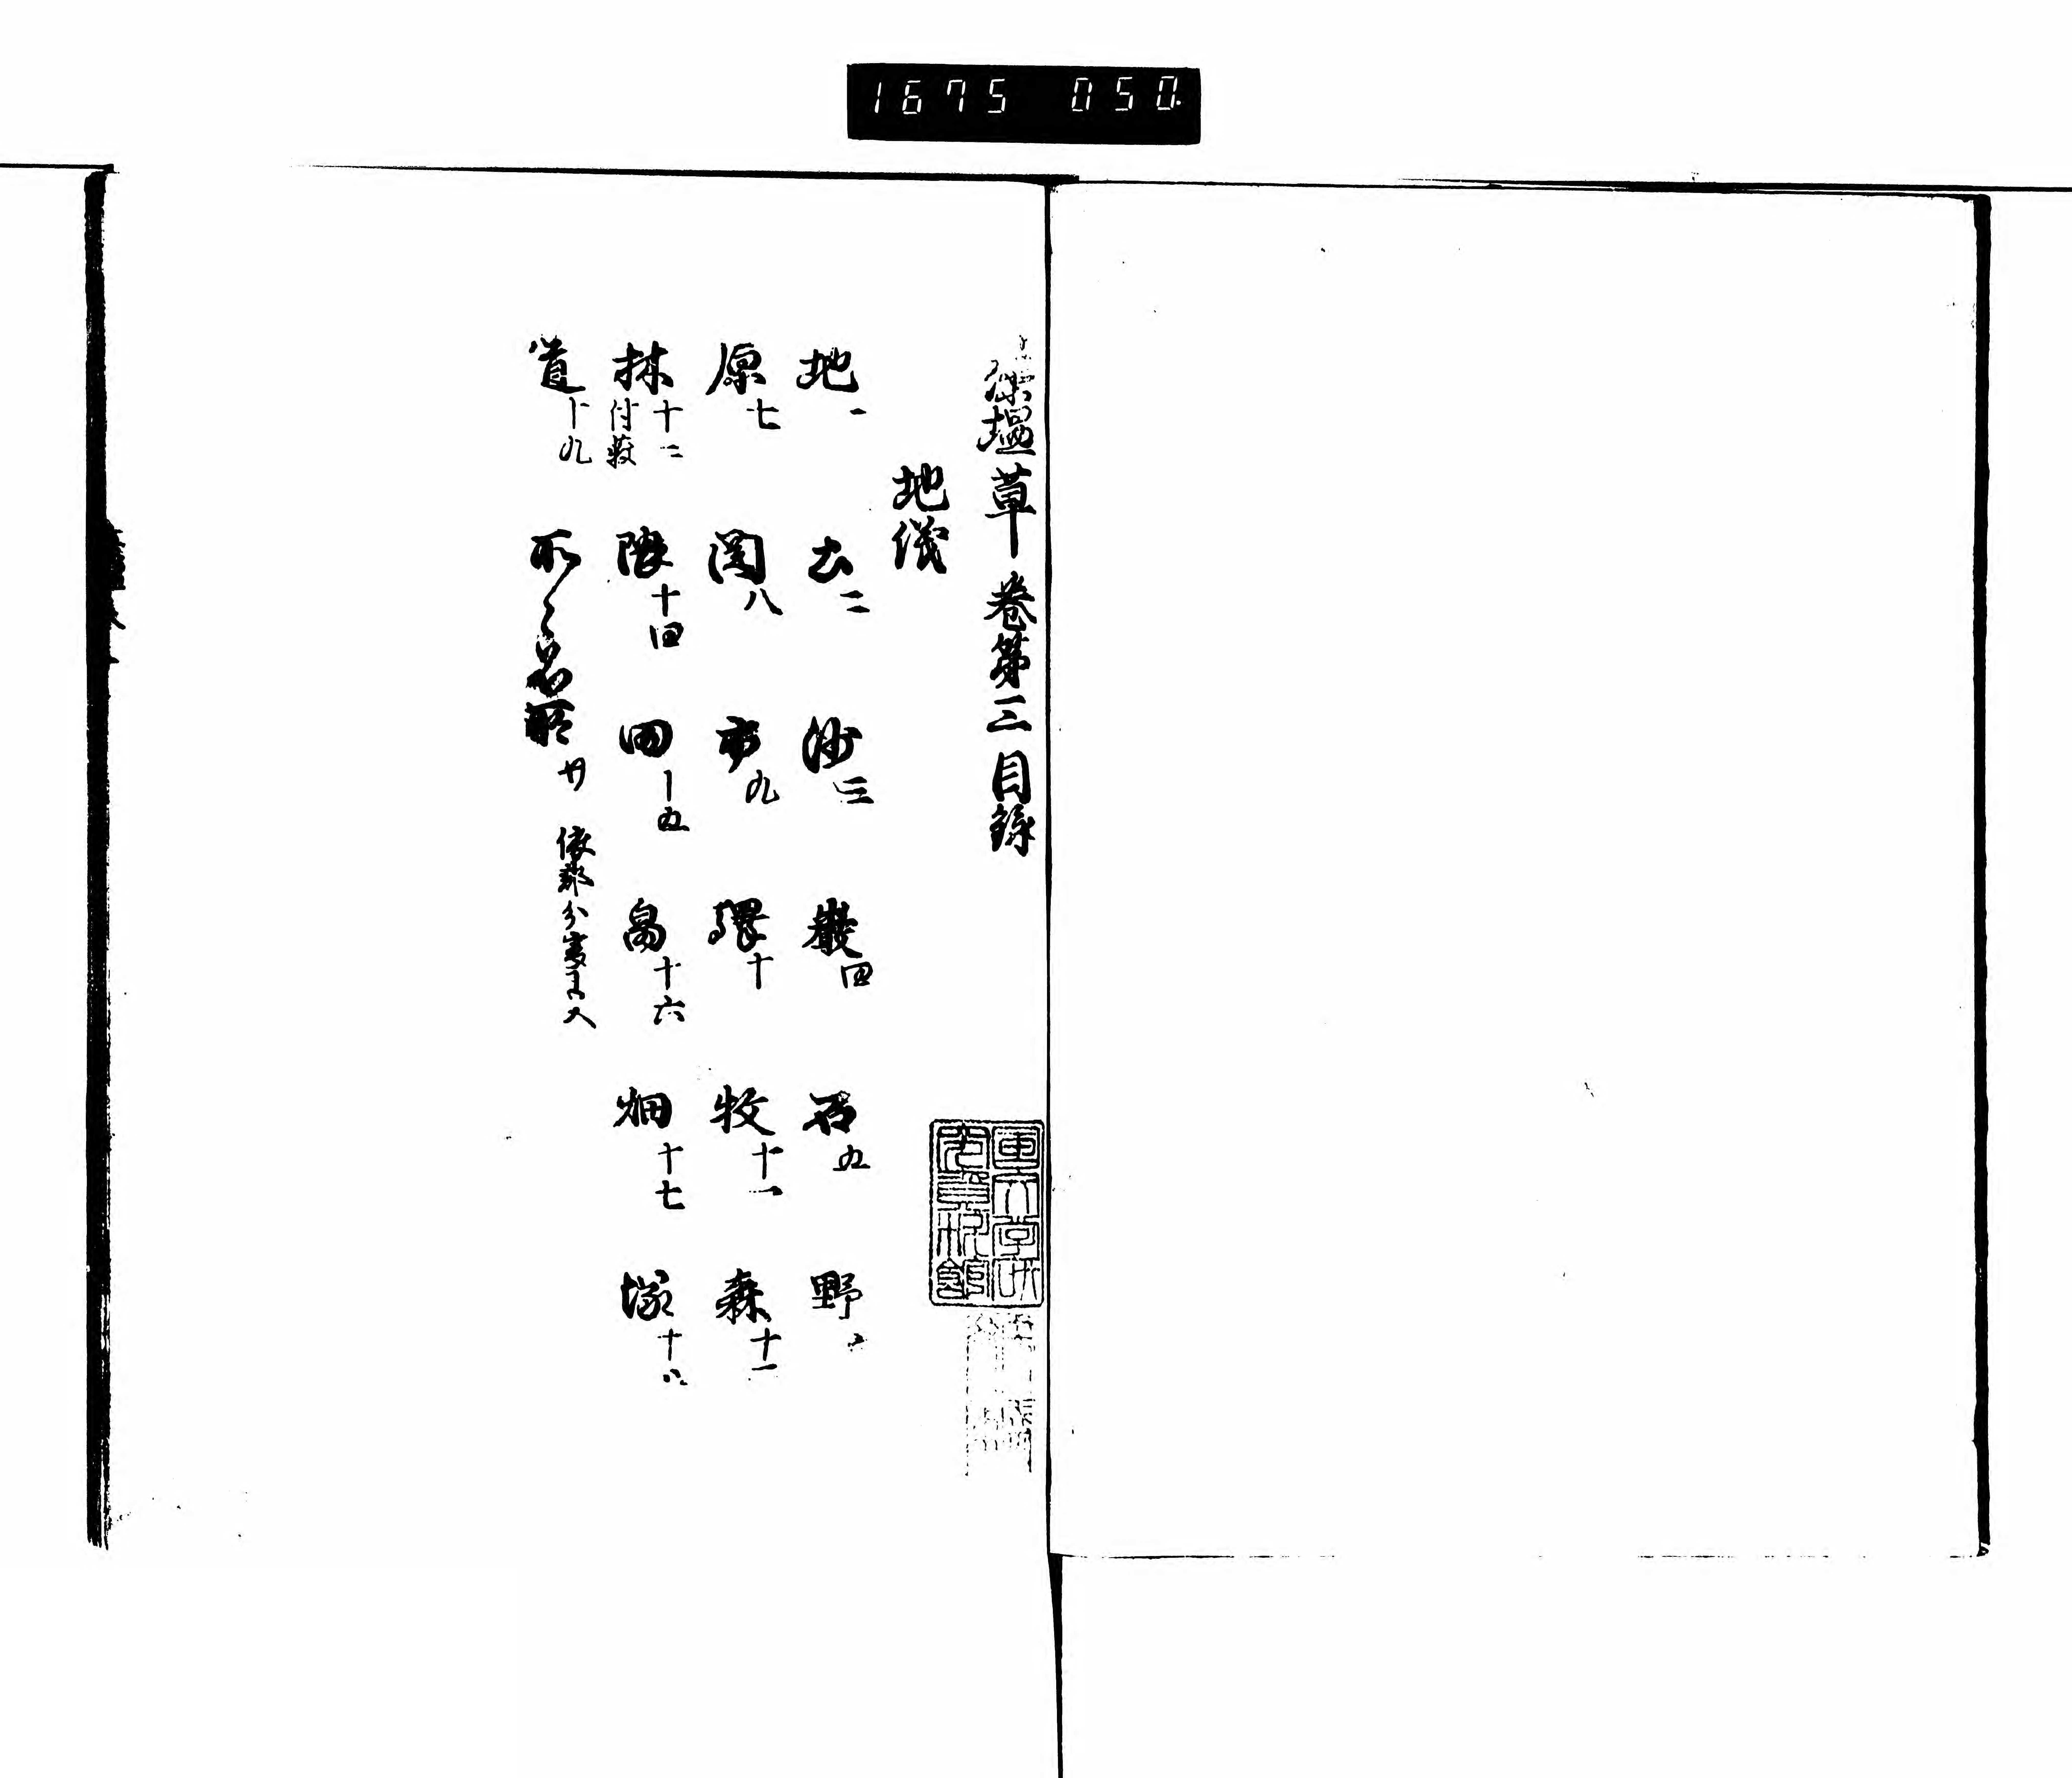 1675 050
藻塩草 巻第三 目録
地儀
地一 土二 沙三 巌四 石五 野六
原七 関八 市九 
十 牧十一 森十二
林十三 付薮 隈十四 田十五 畠十六 畑十七 塚十八
道十九 所々名所 廿
国文学研究資料館